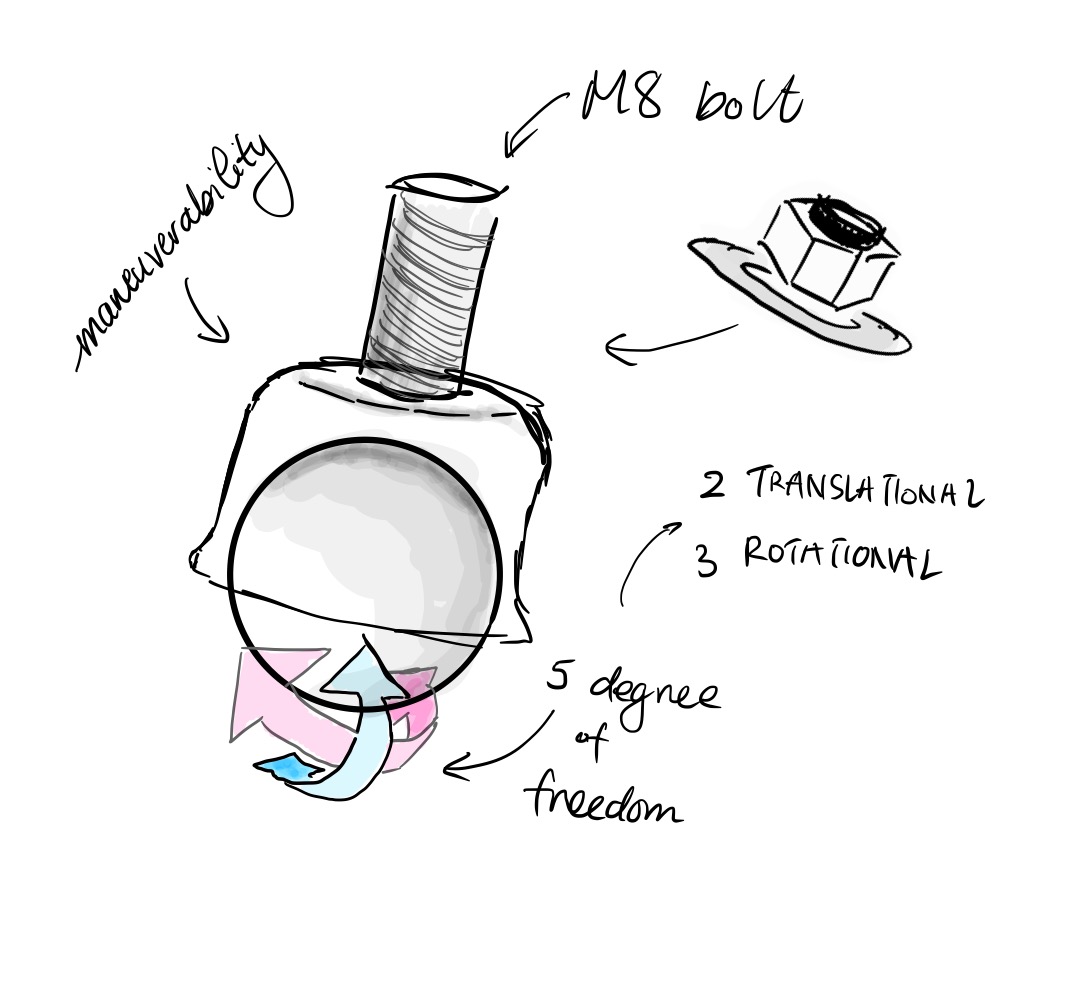 M8 bolt
maneuverability
2 TRANSLATIONAL
3 ROTATIONAL
5 degree
of
freedom